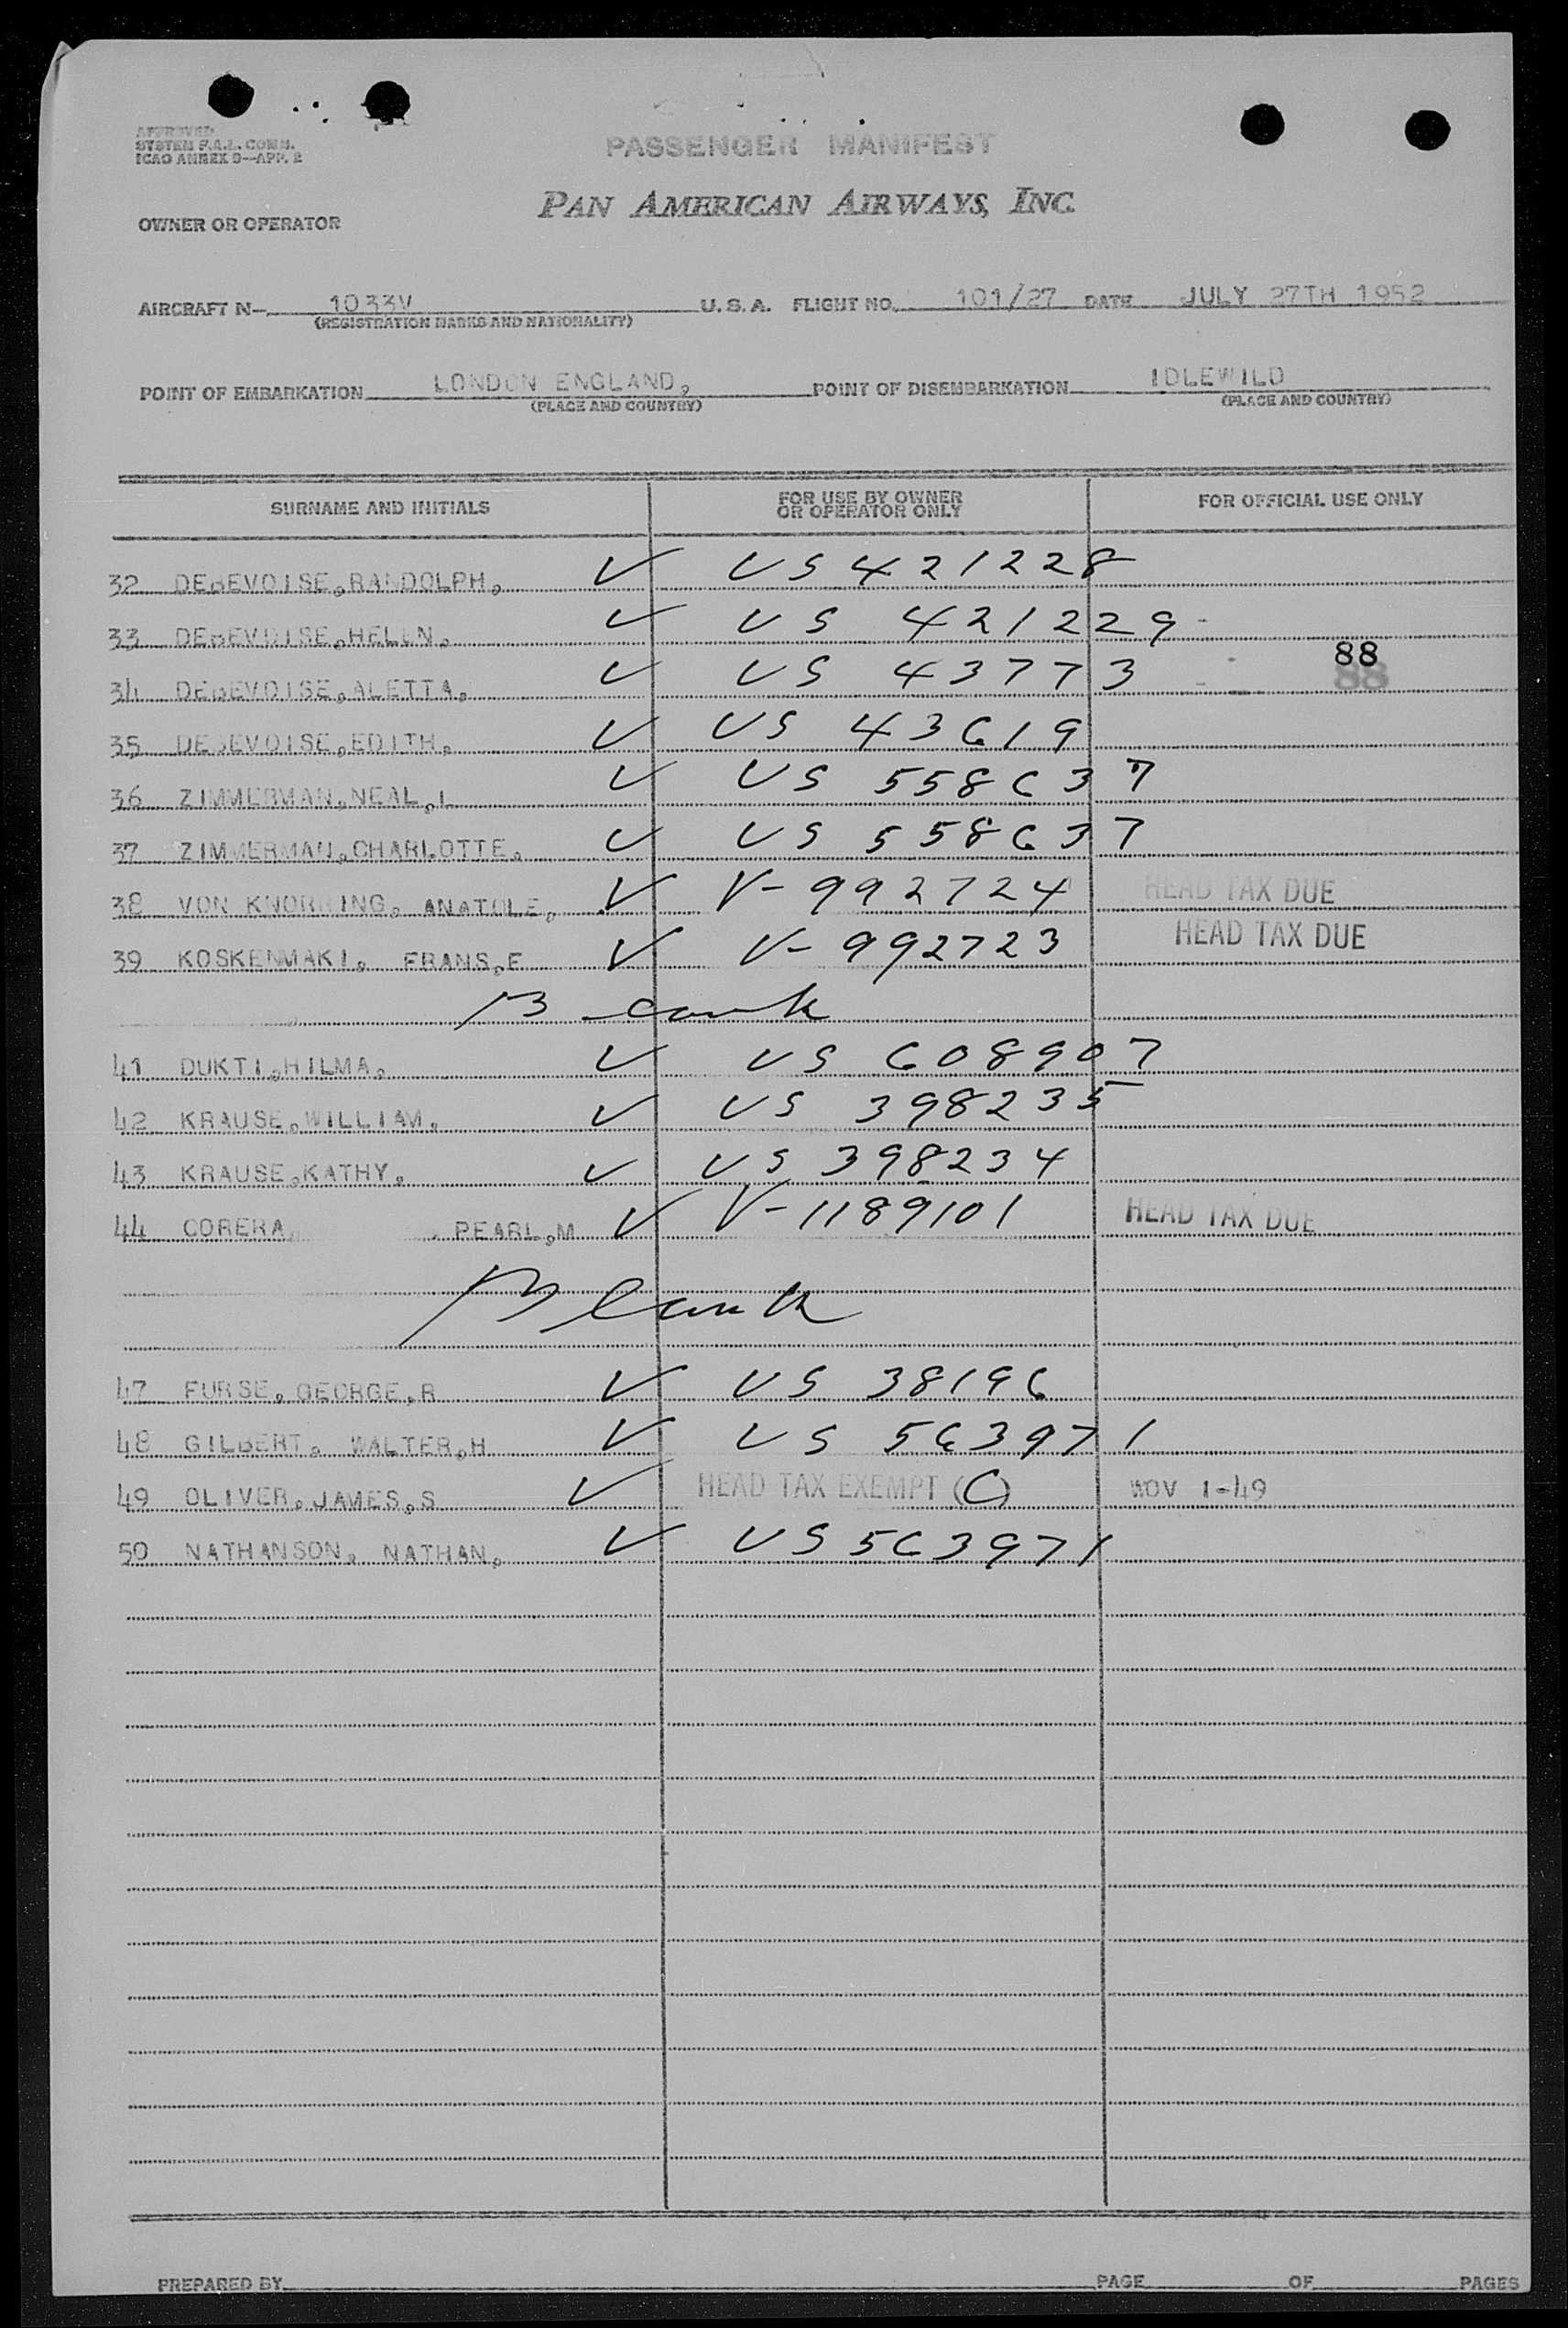 APPROVED
SYSTEM F.A.L. COMM.
ICAO ANNEX 9—APP. 2
PASSENGER MANIFEST
PAN AMERICAN AIRWAYS, INC.
OWNER OR OPERATOR
AIRCRAFT N- 1033V U.S.A. FLIGHT NO. 101/27 DATE JULY 27TH 1952
(REGISTRATION MARKS AND NATIONALITY)
POINT OF EMBARKATION LONDON ENGLAND, POINT OF DISEMBARKATION IDLEWILD
(PLACE AND COUNTRY) (PLACE AND COUNTRY)
SURNAME AND INITIALS FOR USE BY OWNER OR OPERATOR ONLY FOR OFFICIAL USE ONLY
32 DEBEVOISE,RANDOLPH, V US 421228
33 DEBEVOISE,HELEN, V US 421229
88
34 DEBEVOISE,ALETTA, V US 43773
35 DEBEVOISE,EDITH, V US 43619
36 ZIMMERMAN,NEAL,L V US 558637
37 ZIMMERMAN,CHARLOTTE, V US 558637
38 VON KNORRING, ANATOLE, V V-992724 HEAD TAX DUE
39 KOSKENMAKI, FRANS,E V V-992723 HEAD TAX DUE
Blank
41 DUKTI,HILMA, V US 608907
42 KRAUSE,WILLIAM, V US 398235
43 KRAUSE,KATHY, V US 398234
44 CORERA, , PEARL,M V V-1189101 HEAD TAX DUE
Blank
47 FURSE,GEORGE,R V US 38196
48 GILBERT, WALTER,H V US 563971
49 OLIVER,JAMES,S V HEAD TAX EXEMPT (C) NOV 1-49
50 NATHANSON, NATHAN, V US 563971
PREPARED BY PAGE OF PAGES